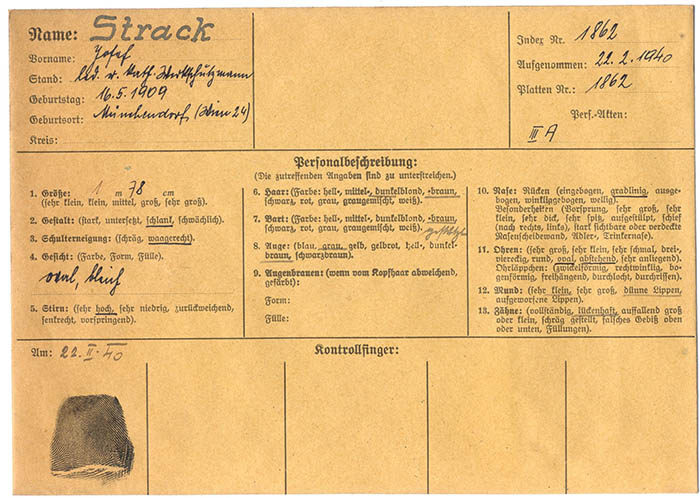 Name: Strack
Vorname: Josef
Stand: led. r. kath. Werkschutzmann
Geburtstag: 16.5.1909
Geburtsort: Münchendorf (Wien 24)
Kreis:
Index Nr. 1862
Aufgenommen: 22.2.1940
Platten Nr.: 1862
Pers.-Akten:
III A
Personalbeschreibung:
(Die zutreffenden Angaben sind zu unterstreichen.)
1. Größe: 1 m 78 cm
(sehr klein, klein, mittel, groß, sehr groß).
2. Gestalt: (stark, untersetzt, schlank, schwächlich).
3. Schulterneigung: (schräg, waagerecht).
4. Gesicht: (Farbe, Form, Fülle).
oval, bleich
5. Stirn: (sehr hoch, sehr niedrig, zurückweichend,
senkrecht, vorspringend).
6. Haar: (Farbe: hell-, mittel-, dunkelblond, -braun,
schwarz, rot, grau, graugemischt, weiß).
7. Bart: (Farbe: hell-, mittel-, dunkelblond, -braun,
schwarz, rot, grau, graugemischt, weiß). gestutzt
8. Auge: (blau, grau, gelb, gelbrot, hell-, dunkel-
braun, schwarzbraun).
9. Augenbrauen: (wenn vom Kopfhaar abweichend,
gefärbt):
Form:
Fülle:
10. Nase: Rücken (eingebogen, gradlinig, ausge-
bogen, winklig gebogen, wellig).
Besonderheiten (Vorsprung, sehr groß, sehr
klein, sehr dick, sehr spitz, aufgestülpt, schief
(nach rechts, links), stark sichtbare oder verdeckte
Nasenscheidewand, Adler-, Trinkernase).
11. Ohren: (sehr groß, sehr klein, sehr schmal, drei-,
viereckig, rund, oval, abstehend, sehr anliegend).
Ohrläppchen: (zwickelförmig, rechtwinklig, bo-
genförmig, freihängend, durchlocht, durchrissen).
12. Mund: (sehr klein, sehr groß, dünne Lippen,
aufgeworfene Lippen).
13. Zähne: (vollständig, lückenhaft, auffallend groß
oder klein, schräg gestellt, falsches Gebiß oben
oder unten, Füllungen).
Am: 22. II. 40
Kontrollfinger: